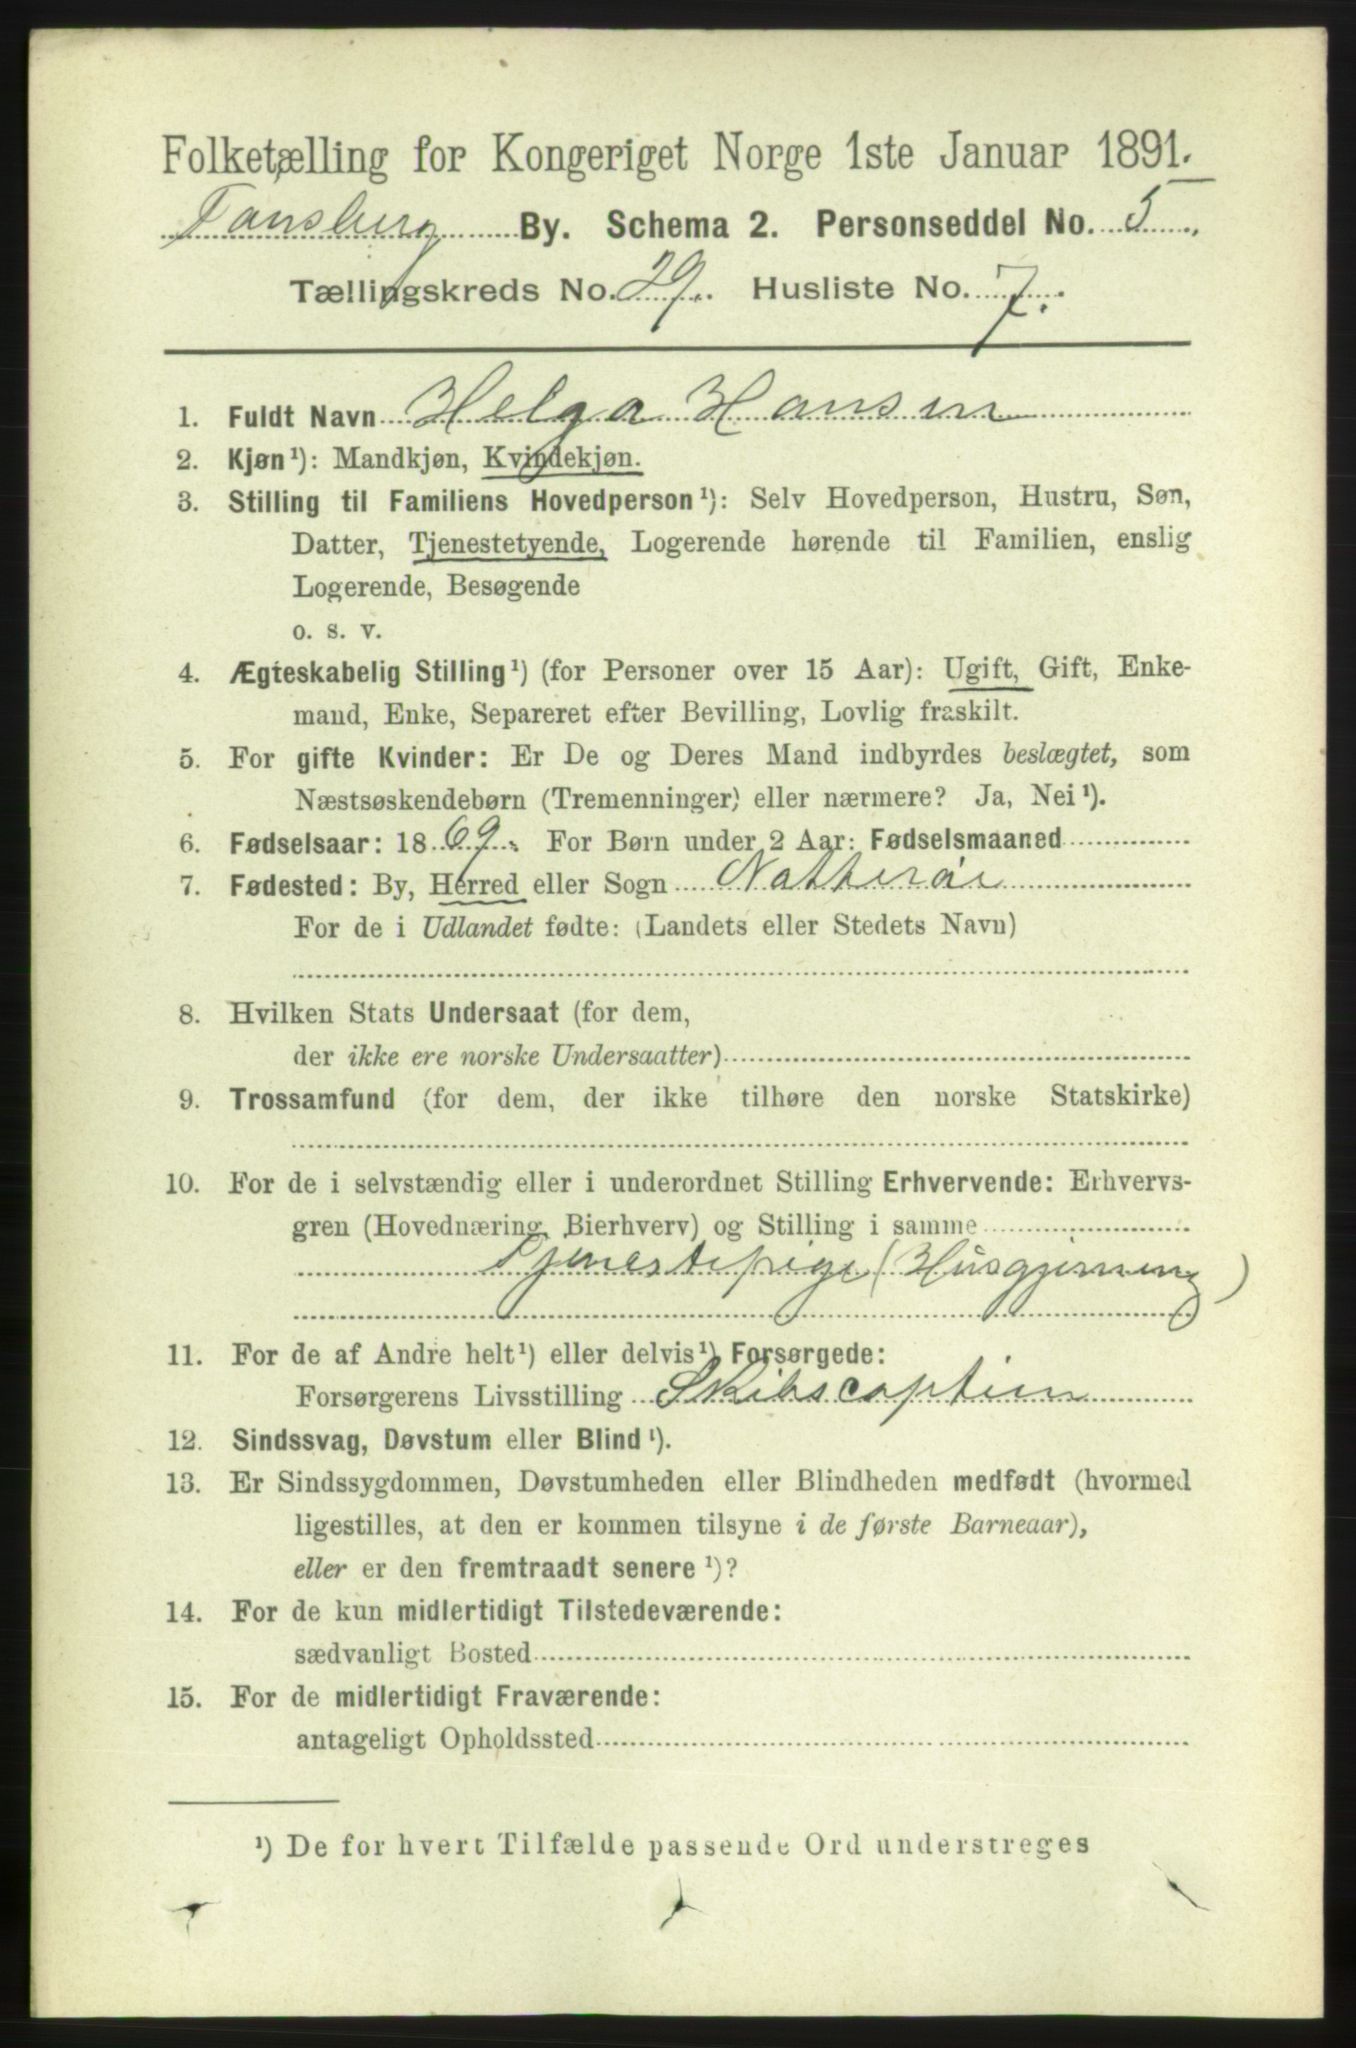 Folketælling for Kongeriget Norge 1ste Januar 1891.
Tønsberg By. Schema 2. Personseddel No. 5
Tællingskreds No. 29. Husliste No. 7.
1. Fuldt Navn Helga Hansen
2. Kjøn¹): Mandkjøn, Kvindekjøn.
3. Stilling til Familiens Hovedperson¹): Selv Hovedperson, Hustru, Søn,
Datter, Tjenestetyende, Logerende hørende til Familien, enslig
Logerende, Besøgende
o. s. v.
4. Ægteskabelig Stilling¹) (for Personer over 15 Aar): Ugift, Gift, Enke-
mand, Enke, Separeret efter Bevilling, Lovlig fraskilt.
5. For gifte Kvinder: Er De og Deres Mand indbyrdes beslægtet, som
Næstsøskendebørn (Tremenninger) eller nærmere? Ja, Nei¹).
6. Fødselsaar: 1869. For Børn under 2 Aar: Fødselsmaaned
7. Fødested: By, Herred eller Sogn Nøtterøe
For de i Udlandet fødte: (Landets eller Stedets Navn)
8. Hvilken Stats Undersaat (for dem,
der ikke ere norske Undersaatter)
9. Trossamfund (for dem, der ikke tilhøre den norske Statskirke)
10. For de i selvstændig eller i underordnet Stilling Erhvervende: Erhvervs-
gren (Hovednæring, Bierhverv) og Stilling i samme
Tjenestepige (Husgjerning)
11. For de af Andre helt¹) eller delvis¹) Forsørgede:
Forsørgerens Livsstilling Skibscaptein
12. Sindssvag, Døvstum eller Blind¹).
13. Er Sindssygdommen, Døvstumheden eller Blindheden medfødt (hvormed
ligestilles, at den er kommen tilsyne i de første Barneaar),
eller er den fremtraadt senere¹)?
14. For de kun midlertidigt Tilstedeværende:
sædvanligt Bosted
15. For de midlertidigt Fraværende:
antageligt Opholdssted
¹) De for hvert Tilfælde passende Ord understreges